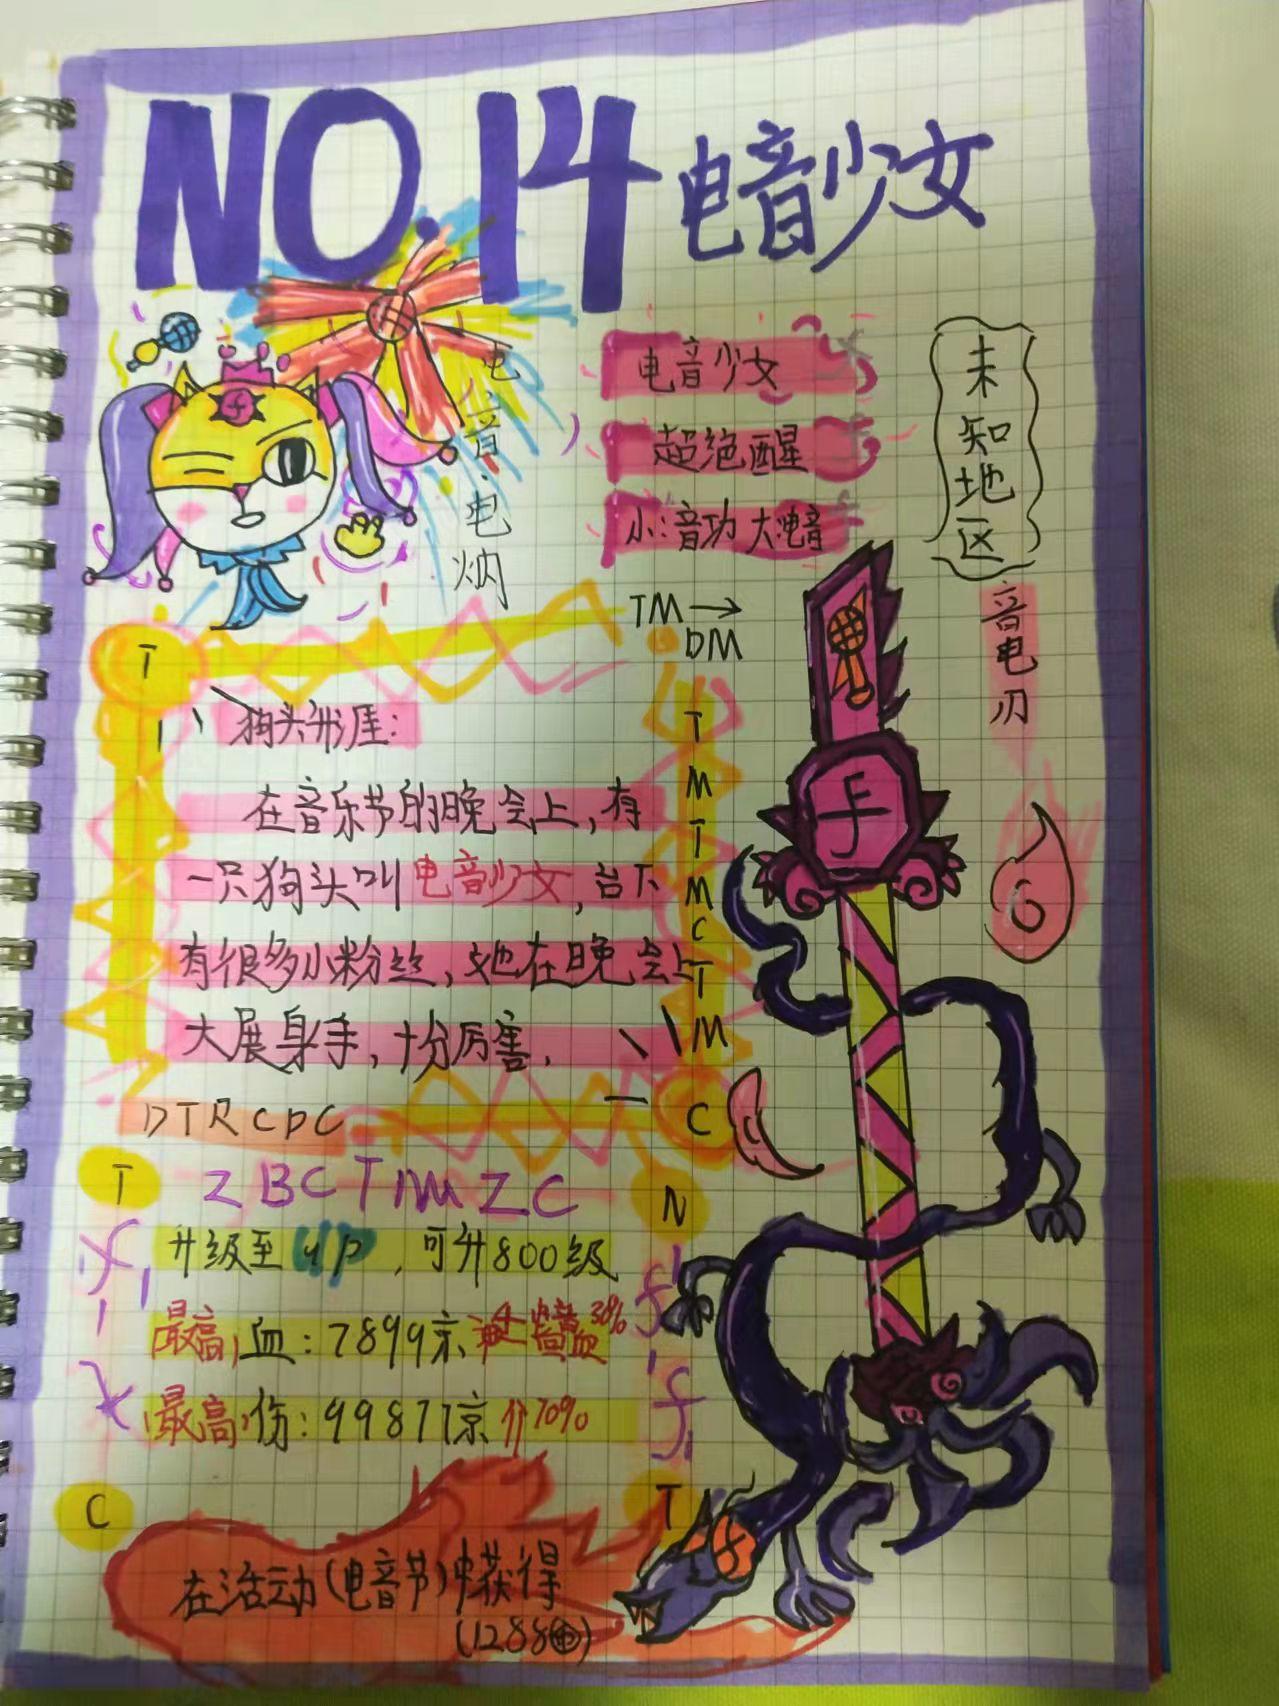 NO.14 电音少女
电
音
电
炳
电音少女
超绝醒
小:音功 大:电音
未
知
地
区
音
电
刃
TM→
DM
T
狗头形涯:
在音乐节的晚会上,有
一只狗头叫电音少女,台下
有很多小粉丝,她在晚会上
大展身手,十分厉害.
T
M
T
M
C
T
M
C
DTRCDC
T ZBCTMZC N
升级至up,可升800级
最高血:7899京 38%
最高伤:99877京 70%
C
T
在活动(电音节)中获得
(1288)